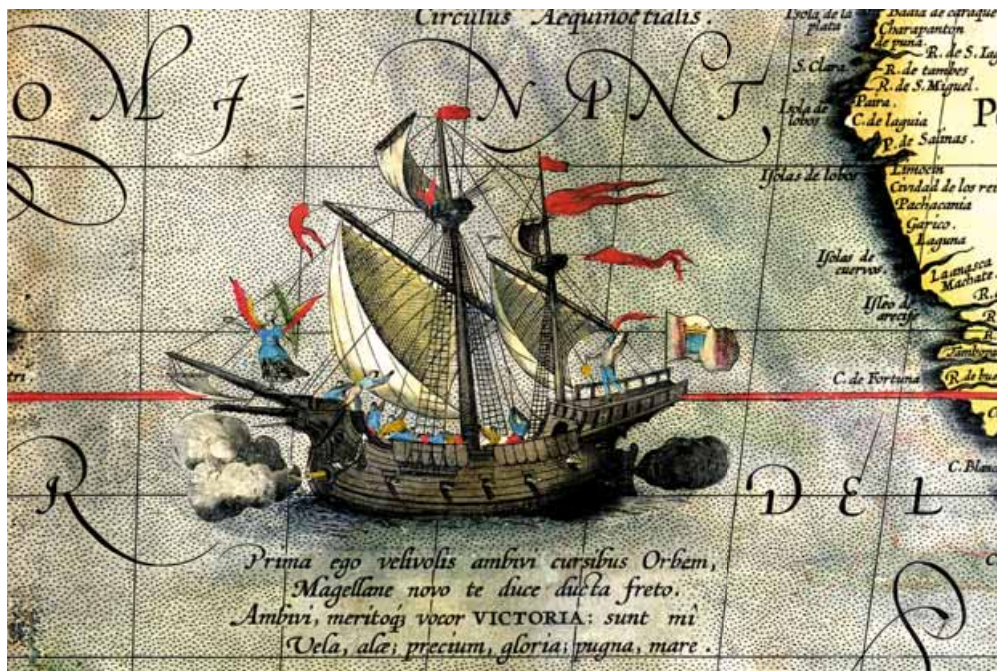 Circulus Aequinoctialis.
OMI = NANT
R DEL
Isola de la
plata.
Badia de caraque
Charapanton
de puna.
R. de S. Iag
S. Clara
R. de tambes
R. de S. Miguel.
Isola de
lobos
Paira.
C. de laguia
P. de Salinas.
Isolas de lobos
Limocin
Cividad de los rei
Pachacania
Garico.
Laguna
Isolas de
cuervos.
Lanasca
Machate
Isleo de
arecife
R.
R
R
Tambopa
C. de Fortuna
R. de bue
C. Blanc
P
C
eri.
Prima ego velivolis ambivi cursibus Orbem,
Magellane novo te duce ducta freto.
Ambivi, meritoq; vocor VICTORIA: sunt mî
Vela, alæ; precium, gloria; pugna, mare.